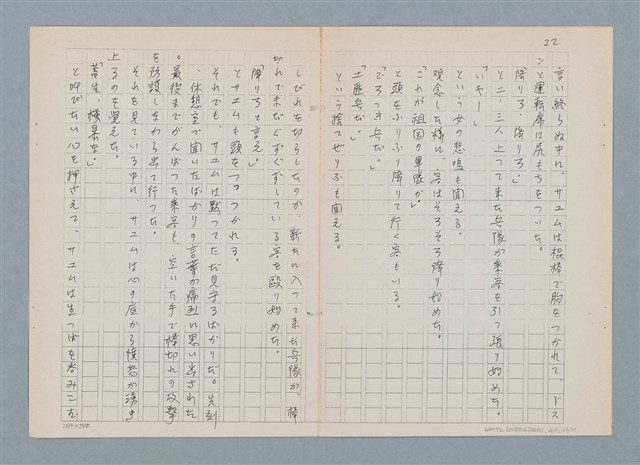 22
言い終らぬ中に、サユムは棍棒で胸をつかれて、ドス
ンと運転席に尻もちをついた。
「降りろ、降りろ」
と二、三人上って来た兵隊が乗客を引っ張り始めた。
「いやー」
という女の悲鳴も聞える。
観念した様に、客はそろそろ降り始めた。
「これが祖国の軍隊か」
と頭をふりふり降りて行く客もいる。
「ごろつき兵だ。」
「土匪兵だ。」
という捨てぜりふも聞える。
しびれを切らしたのか、新たに入って来た兵隊が、棒
切れでまだぐずぐずしている客を殴り始めた。
「降りろと言え」
とサユムも頭をつっつかれる。
それでも、サユムは黙ってただ見守るばかりだ。先刻
、休憩室で聞いたばかりの言葉が痛烈に思い出された
。最後までがんばった乗客も、空いた手で棒切れの攻撃
を防護しながら出て行った。
それを見ている中に、サユムは心の底から憤怒が湧き
上るのを覚えた。
「畜生、横暴な」
と叫びたい心を押さえて、サユムは生つばを呑みこんだ